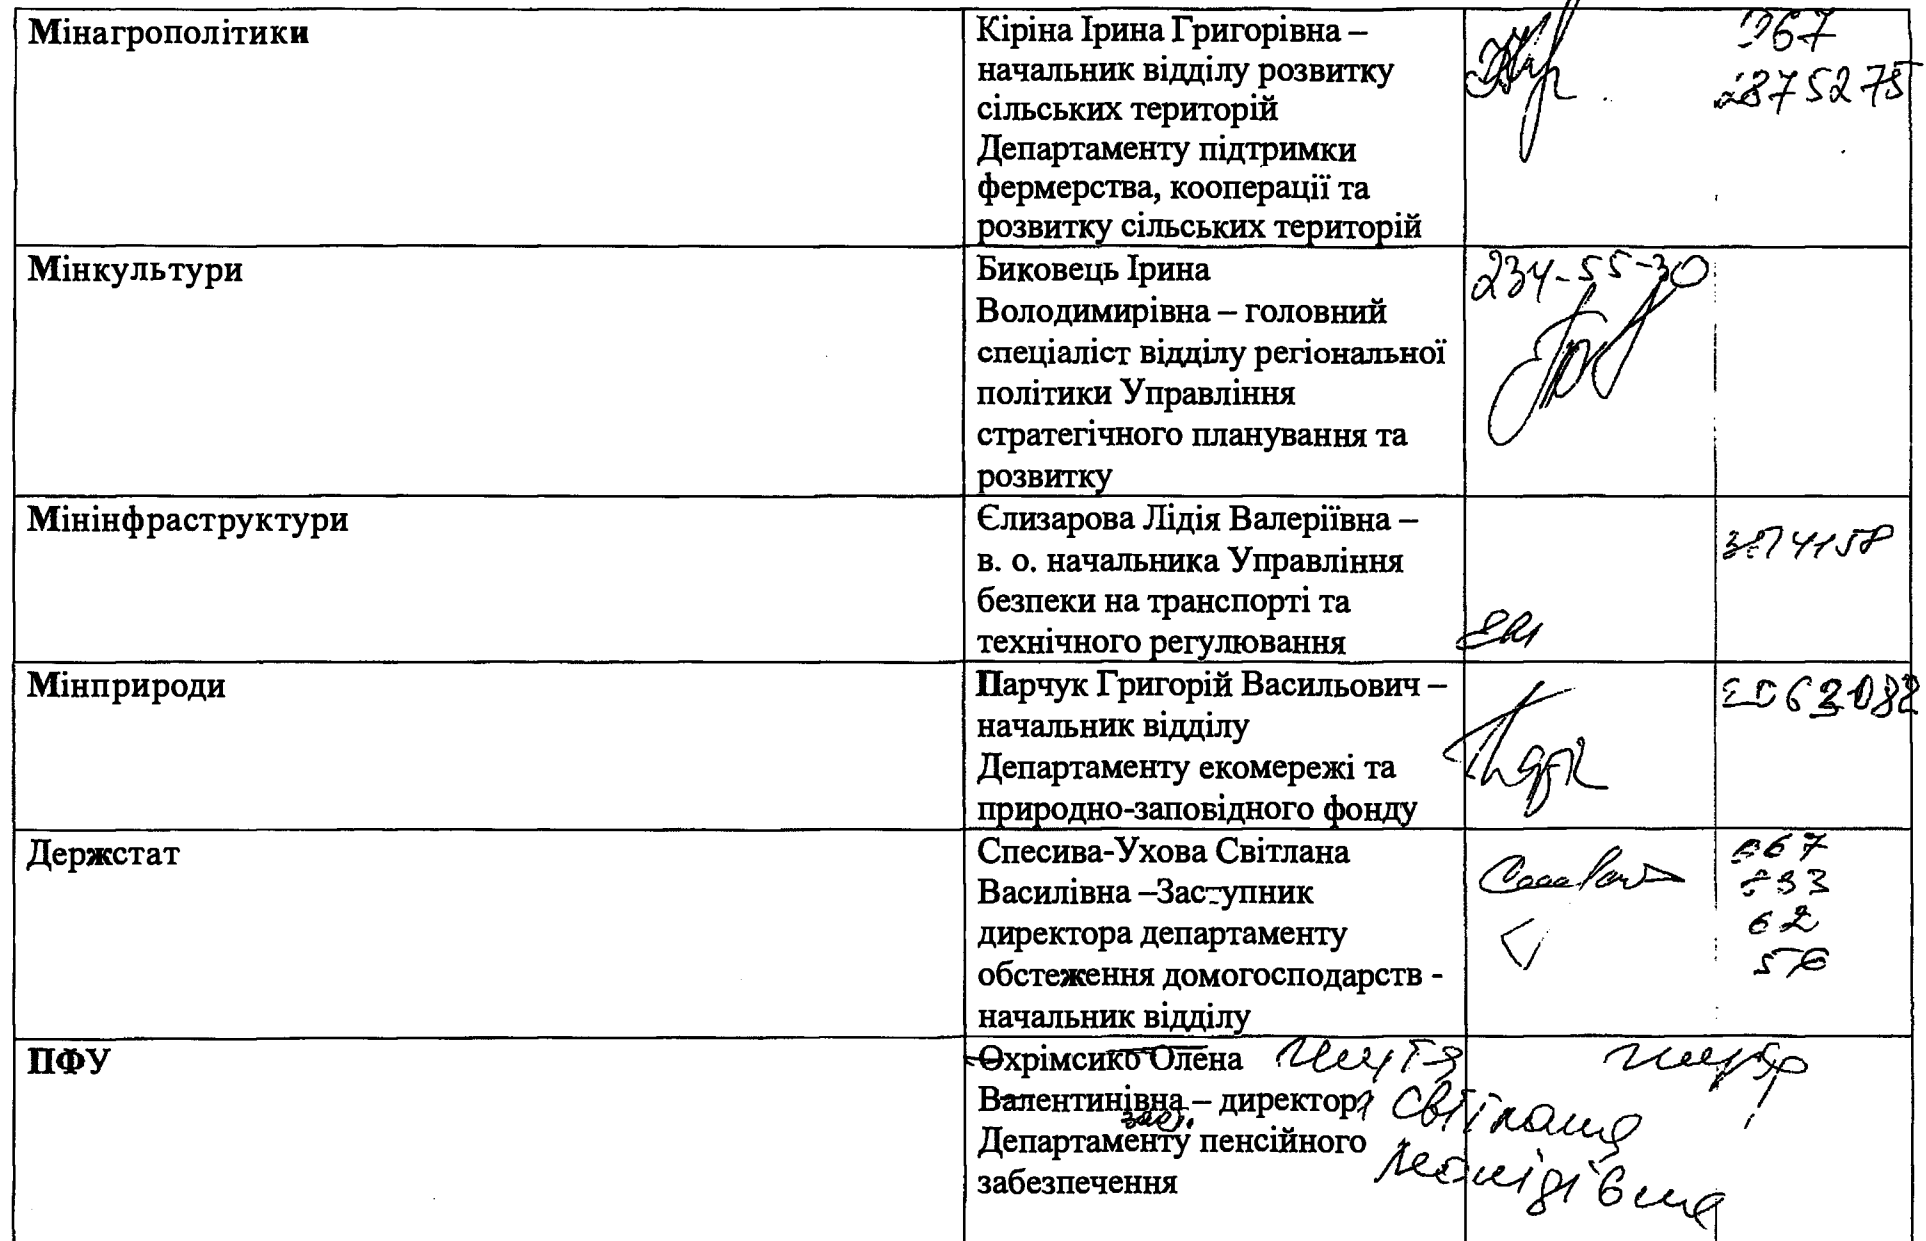 Мінагрополітики
Кіріна Ірина Григорівна –
начальник відділу розвитку
сільських територій
Департаменту підтримки
фермерства, кооперації та
розвитку сільських територій
067
2875275
Мінкультури
Биковець Ірина
Володимирівна – головний
спеціаліст відділу регіональної
політики Управління
стратегічного планування та
розвитку
234-55-30
Мінінфраструктури
Єлизарова Лідія Валеріївна –
в. о. начальника Управління
безпеки на транспорті та
технічного регулювання
Мінприроди
Парчук Григорій Васильович –
начальник відділу
Департаменту екомережі та
природно-заповідного фонду
Держстат
Спесива-Ухова Світлана
Василівна –Заступник
директора департаменту
обстеження домогосподарств -
начальник відділу
067
62
56
ПФУ
Охрімсико Олена
Валентинівна – директор
заст.
Департаменту пенсійного
забезпечення
Світлана
Леонідівна